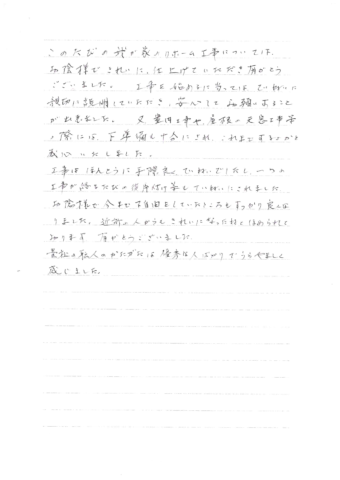 このたびの我が家のリホーム工事については、
お陰様できれいに仕上げていただき有がとう
ございました。 工事を始めるに当ってはていねいに
説明していただき、安心してお願いすること
が出来ました。 又 工事や、屋根の 工事等
の際には、下準備も十分にされ、これまでするのかと
感心いたしました。
工事はほんとうに手際良くていねいでしたし、一つの
工事が終るたびの後片付け等もていねいにされました
お陰様で今まで不自由をしていたところもすっかり良くな
りました。近所の人からもきれいになったねとほめられて
おります 有がとうございました
貴社の職人のかたがたは 人ばかりでうらやましく
感じました。